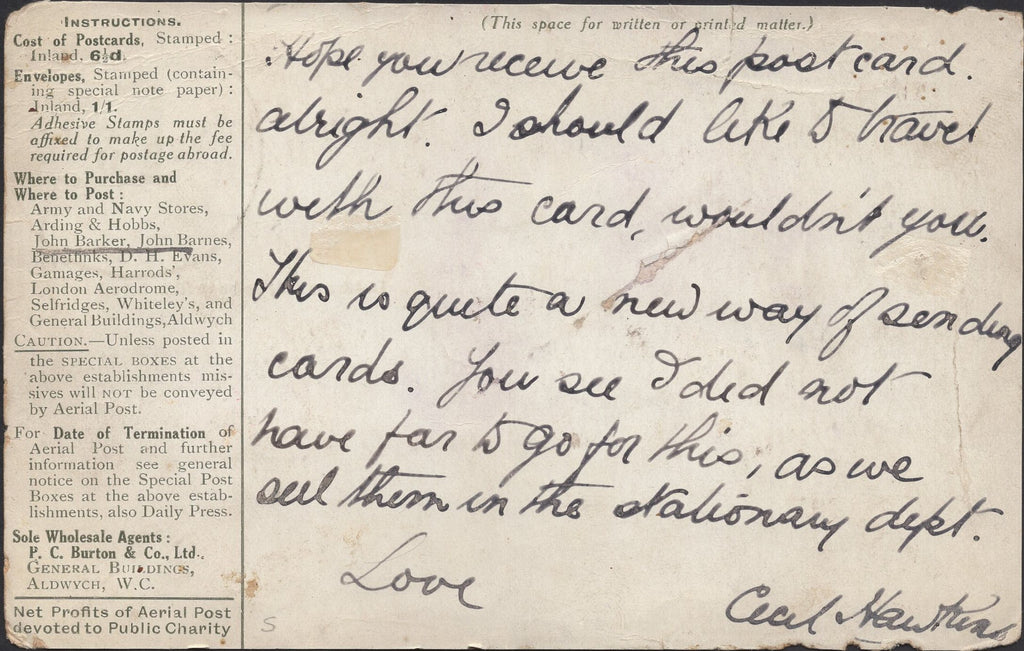 INSTRUCTIONS.
Cost of Postcards, Stamped :
Inland, 6½d.
Envelopes, Stamped (contain-
ing special note paper) :
Inland, 1/1.
Adhesive Stamps must be
affixed to make up the fee
required for postage abroad.
Where to Purchase and
Where to Post :
Army and Navy Stores,
Arding & Hobbs,
John Barker, John Barnes,
Benetfinks, D. H. Evans,
Gamages, Harrods',
London Aerodrome,
Selfridges, Whiteley's, and
General Buildings, Aldwych
CAUTION.—Unless posted in
the SPECIAL BOXES at the
above establishments mis-
sives will NOT be conveyed
by Aerial Post.
For Date of Termination of
Aerial Post and further
information see general
notice on the Special Post
Boxes at the above estab-
lishments, also Daily Press.
Sole Wholesale Agents :
P. C. Burton & Co., Ltd.,
GENERAL BUILDINGS,
ALDWYCH, W.C.
Net Profits of Aerial Post
devoted to Public Charity
(This space for written or printed matter.)
Hope you receive this post card.
alright. I should like to travel
with this card, wouldn't you.
This is quite a new way of sending
cards. You see I did not
have far to go for this, as we
sell them in the stationary dept.
Love
Cecil Hawkins
S